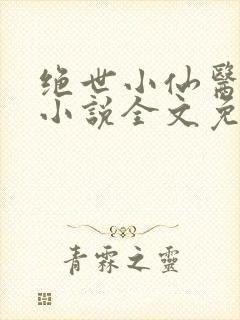 绝世小仙醫
小説全文免
青霖之靈